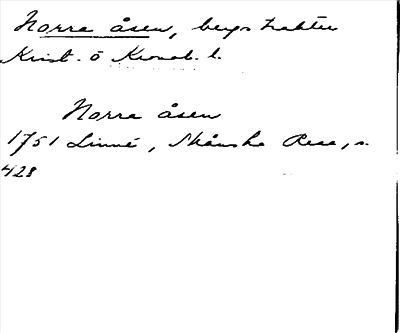 Norra åsen, bergstrakter
Krist. o Kronob. l.
Norra åsen
1751 Linné, Skånska Resa, s.
428